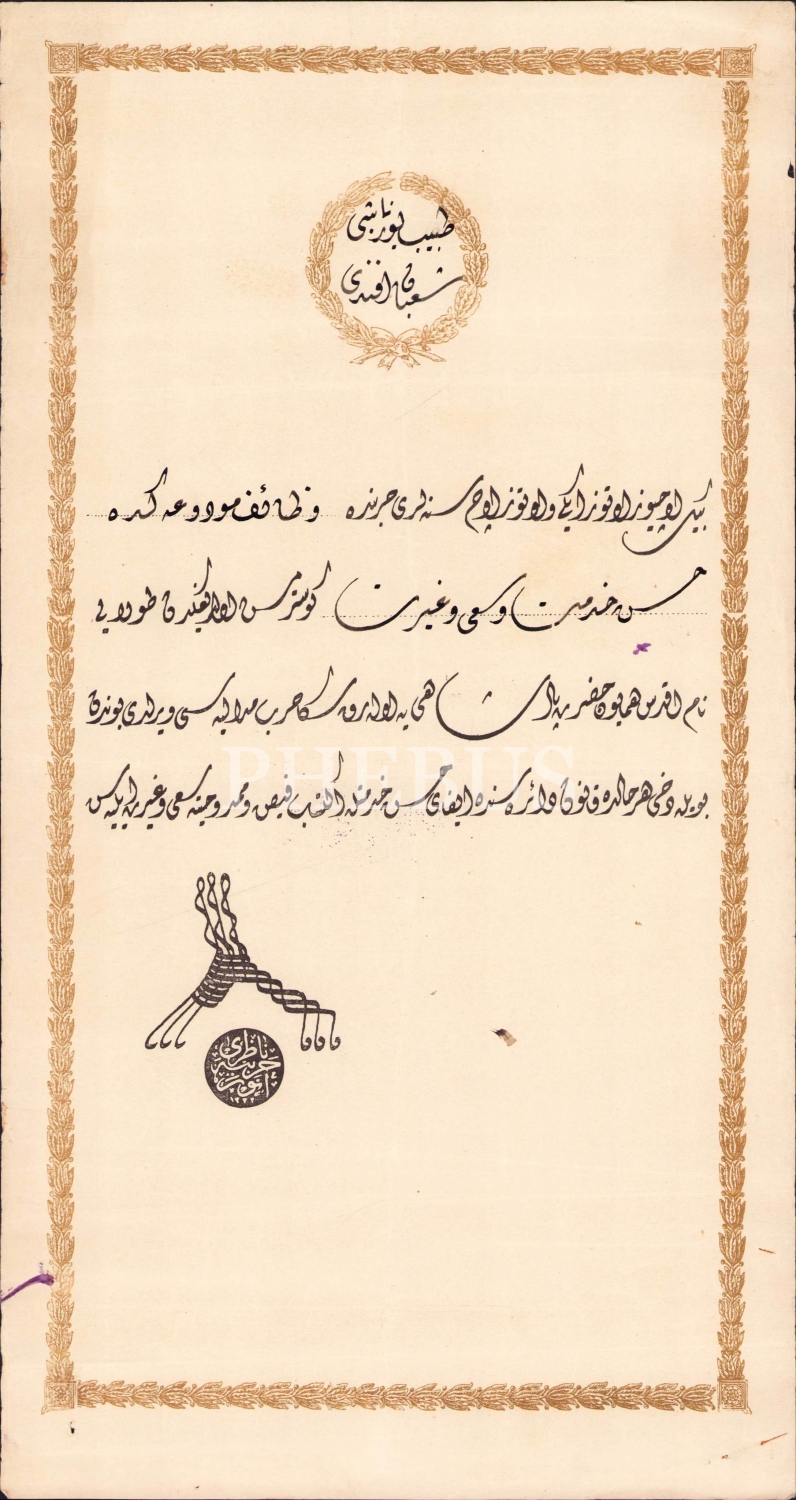 طبیب یوزباشی
شعبان افندی
بیك اوچیوز اوتوز ایکی و اوتوز اوچ سنه لری حربنده وظائف مودوعه کده
حسن خدمت و سعی و غیرت کوسترمش اولدیغکدن طولایی
نام اقدس همایون حضرت پادشاهی یه اوله رق سکا حرب مدالیه سی ویرلدی بوندن
بویله دخی هر حالده قانون دائره سنده ایفای حسن خدمتله اکتساب فیض و ممدوحیته سعی و غیرت ایلیه سن
PHEBUS
ناظری
حربیه
انور